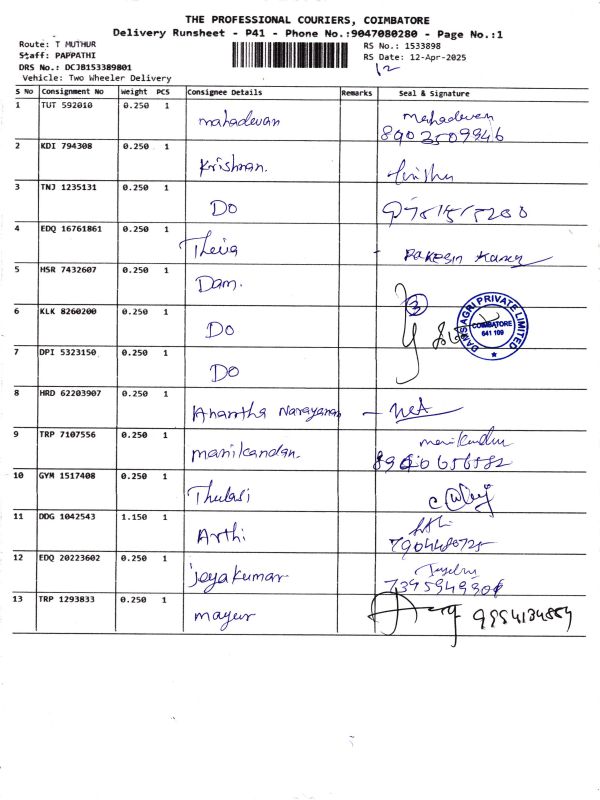 THE PROFESSIONAL COURIERS, COIMBATORE
Delivery Runsheet - P41 - Phone No.:9047080280 - Page No.:1
Route: T MUTHUR RS No.: 1533898
Staff: PAPPATHI RS Date: 12-Apr-2025
DRS No.: DCJB153389801 12
Vehicle: Two Wheeler Delivery
S No Consignment No Weight PCS Consignee Details Remarks Seal & Signature
1 TUT 592010 0.250 1 mahadevan Mahadevan
8903509946
2 KDI 794308 0.250 1 Krishnan.
3 TNJ 1235131 0.250 1 Do
4 EDQ 16761861 0.250 1 Theiva
5 HSR 7432607 0.250 1 Dam.
6 KLK 8260200 0.250 1 Do 3
DAMSAGRI PRIVATE LIMITED
COIMBATORE
641 109
7 DPI 5323150 0.250 1 Do
8 HRD 62203907 0.250 1 Anantha Narayanan
9 TRP 7107556 0.250 1 manikandan. manikandan
10 GYM 1517408 0.250 1 Thulasi
11 DDG 1042543 1.150 1 Arthi
12 EDQ 20223602 0.250 1 jeyakumar
13 TRP 1293833 0.250 1 mayur